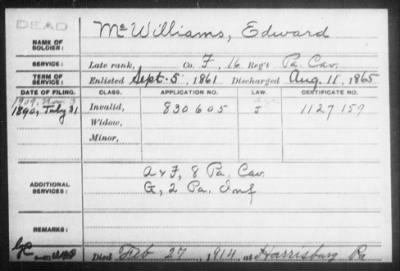 DEAD
NAME OF SOLDIER: McWilliams, Edward
SERVICE: Late rank, Co. F, 16 Reg't Pa. Cav.
TERM OF SERVICE: Enlisted Sept. 5, 1861 Discharged Aug. 11, 1865
DATE OF FILING. CLASS. APPLICATION NO. LAW. CERTIFICATE NO.
1890, July 31 Invalid, 830605 J 1127159
Widow,
Minor,
ADDITIONAL SERVICES: A & F, 8 Pa. Cav.
G, 2 Pa. Inf
REMARKS:
Died Feb 27, 1914, at Harrisburg Pa